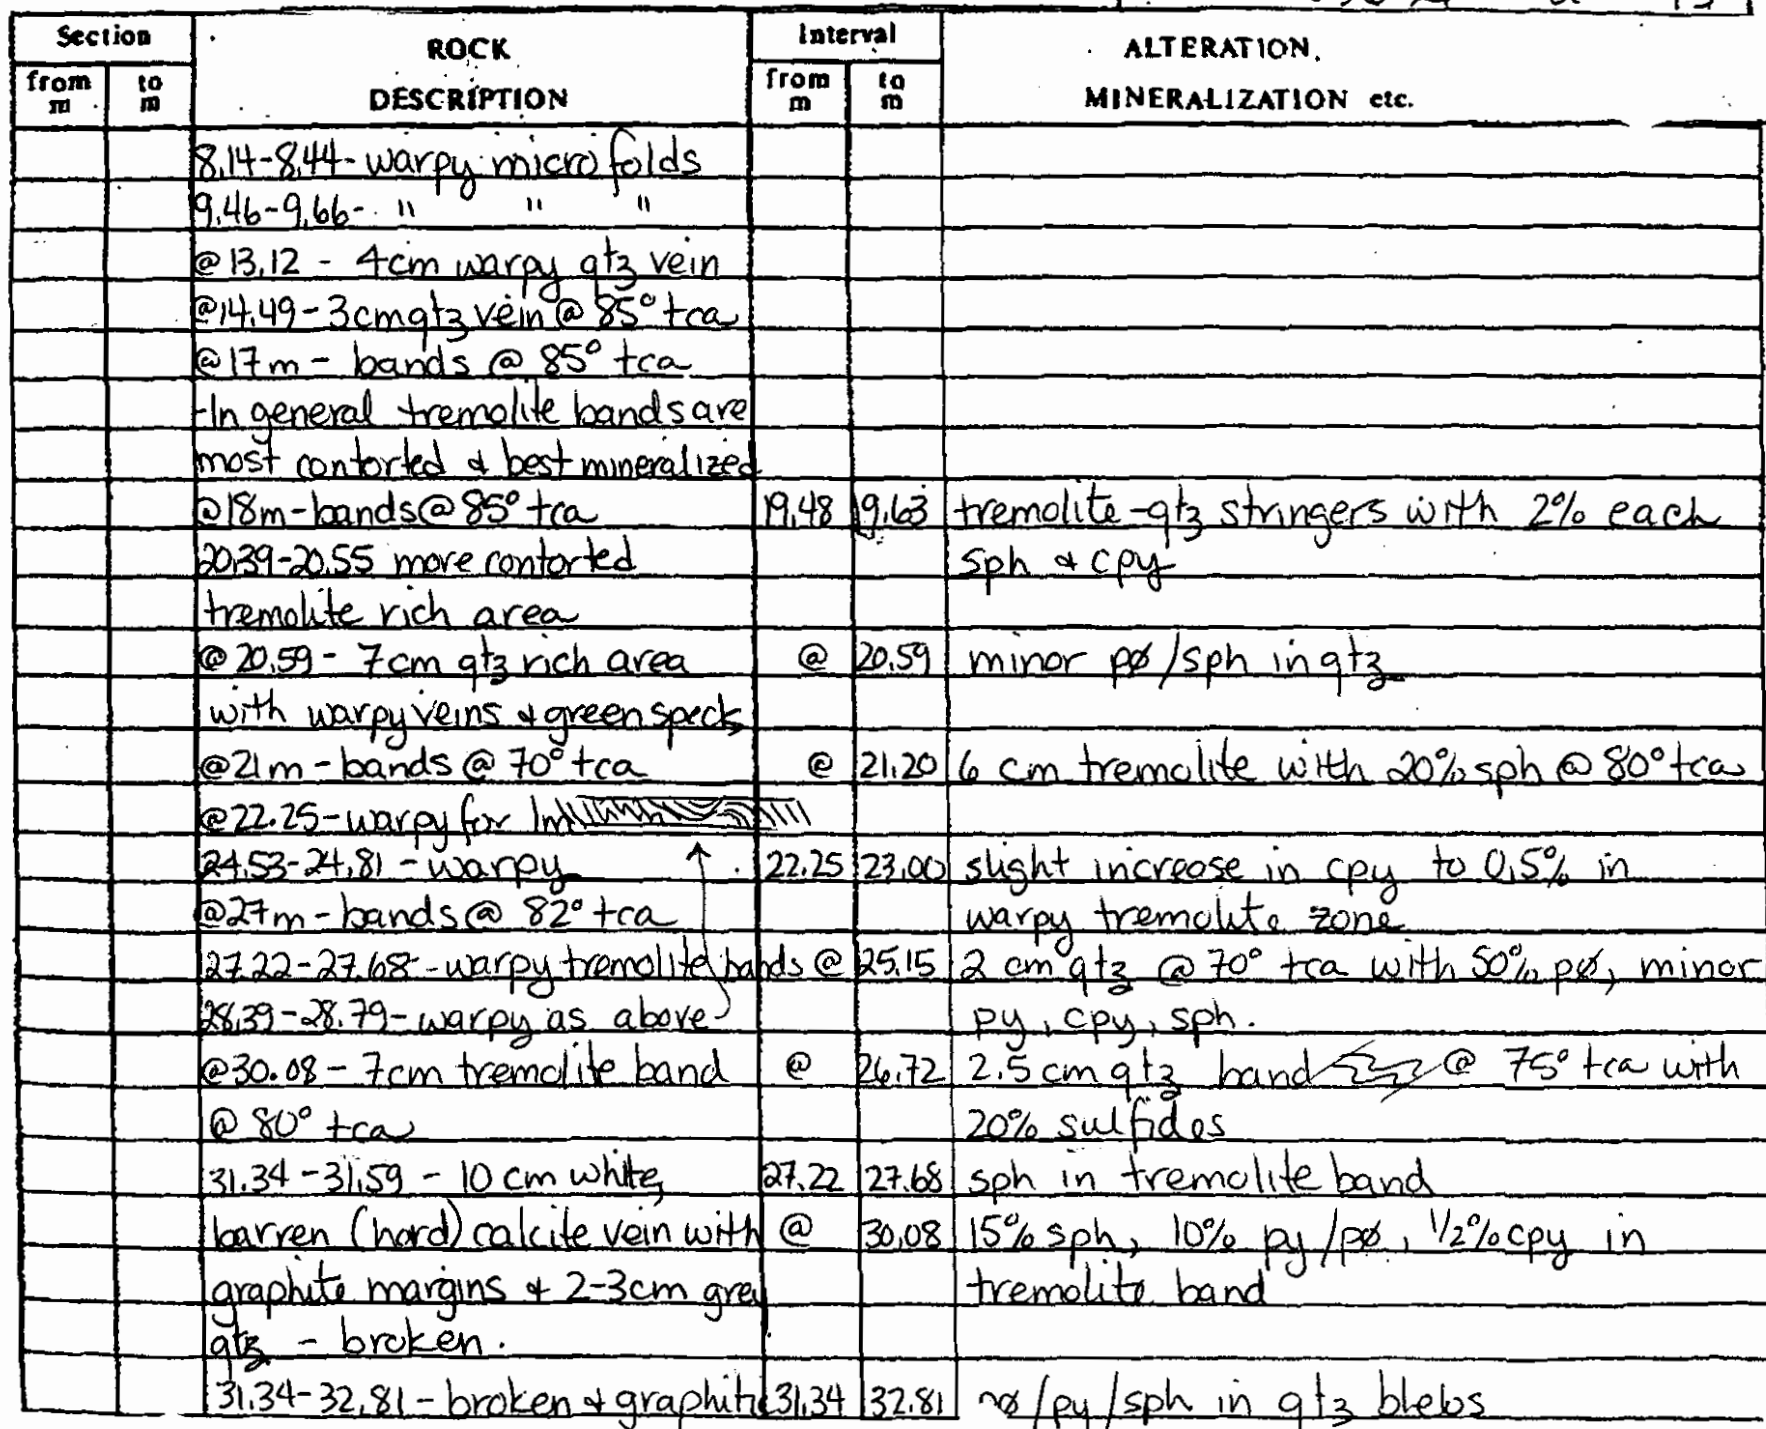 Section ROCK Interval ALTERATION,
from to DESCRIPTION from to MINERALIZATION etc.
m m m m
8.14-8.44- warpy micro folds
9.46-9.66- " " "
@ 13.12 - 4cm warpy qtz vein
@14.49-3cm qtz vein @ 85° tca
@17m - bands @ 85° tca
-In general tremolite bands are
most contorted & best mineralized
@18m-bands@85° tca 19.48 19.63 tremolite-qtz stringers with 2% each
20.39-20.55 more contorted sph & cpy
tremolite rich area
@ 20.59- 7cm qtz rich area @ 20.59 minor pø/sph in qtz
with warpy veins & green specks
@21m-bands @ 70° tca @ 21.20 6 cm tremolite with 20% sph @ 80° tca
@22.25-warpy for 1m
24.53-24.81 - warpy 22.25 23.00 slight increase in cpy to 0.5% in
@27m-bands@ 82° tca warpy tremolite zone
27.22-27.68-warpy tremolite bands @ 25.15 2 cm qtz @ 70° tca with 50% pø, minor
28.39-28.79-warpy as above py, cpy, sph.
@30.08 - 7cm tremolite band @ 26.72 2.5 cm qtz band @ 75° tca with
@ 80° tca 20% sulfides
31.34-31.59 - 10 cm white, 27.22 27.68 sph in tremolite band
barren (hard) calcite vein with @ 30.08 15% sph, 10% py/pø, 1/2% cpy in
graphite margins & 2-3cm grey tremolite band
qtz - broken.
31.34-32.81-broken & graphitic 31.34 32.81 pø/py/sph in qtz blebs